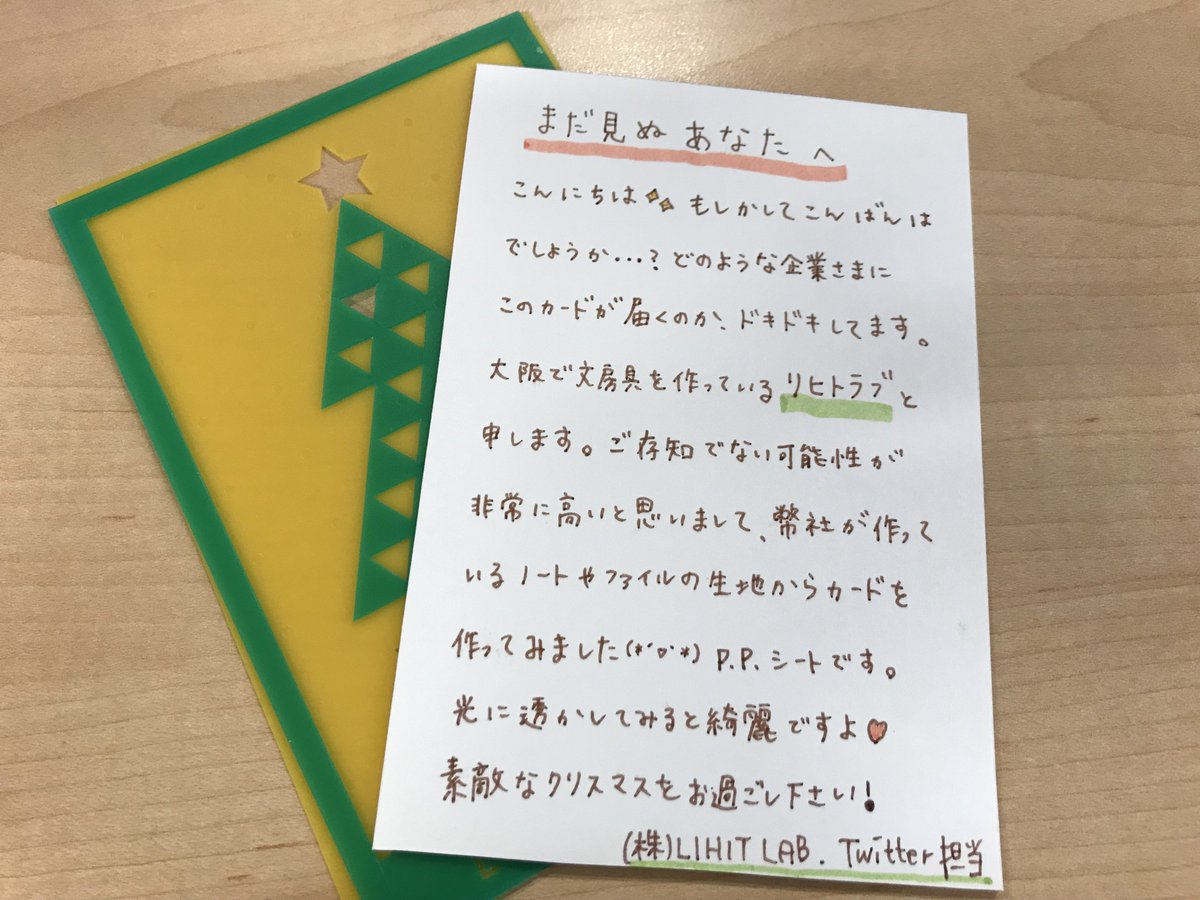 まだ見ぬ あなた へ
こんにちは✨ もしかして こんばんは
でしょうか...? どのような企業さまに
このカードが届くのか、ドキドキしてます。
大阪で文房具を作っているリヒトラブと
申します。ご存知でない可能性が
非常に高いと思いまして、弊社が作って
いるノートやファイルの生地からカードを
作ってみました(*´▽`*) P.P.シートです。
光に透かしてみると綺麗ですよ♥
素敵なクリスマスをお過ごし下さい!
(株)LIHIT LAB. Twitter担当